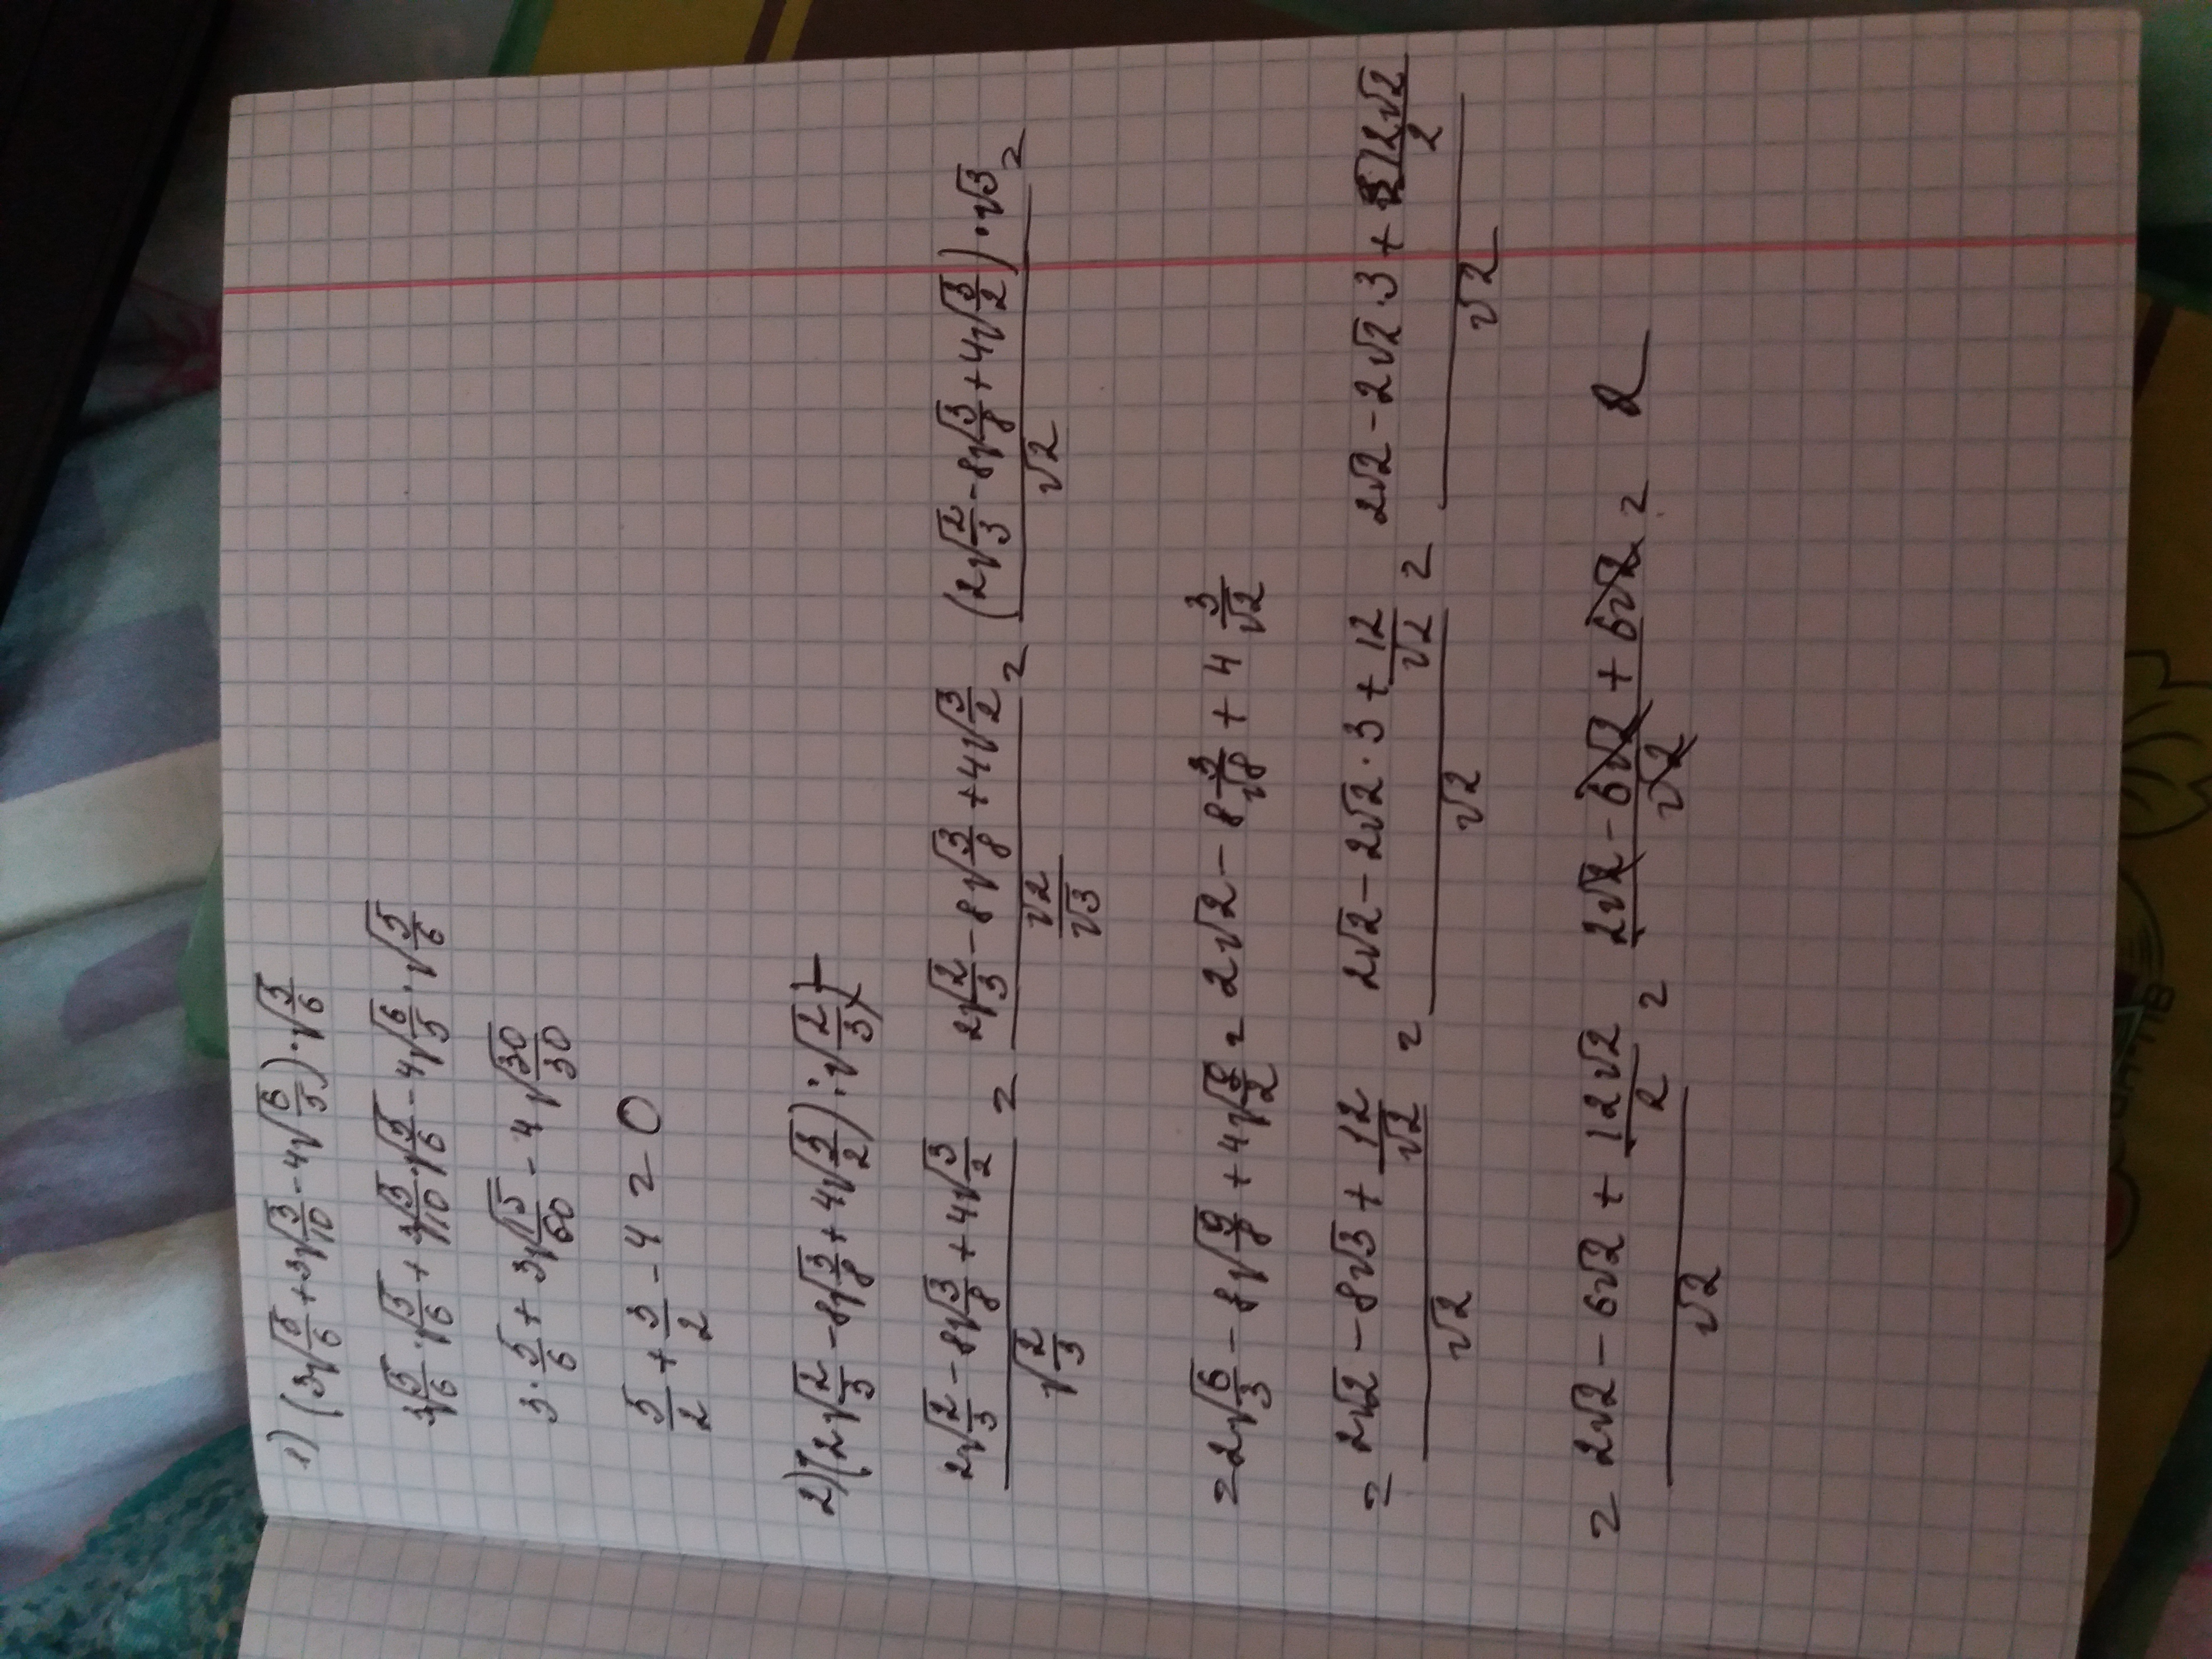 1) (3√5/6 + 3√3/10 - 4√6/5) · √5/6
3√5/6 · √5/6 + 3√3/10 · √5/6 - 4√6/5 · √5/6
3 · 5/6 + 3√15/60 - 4√30/30
5/2 + 3/2 - 4 = 0
2) (2√2/3 - 8√3/8 + 4√3/2) : √2/3
(2√2/3 - 8√3/8 + 4√3/2) / √2/3 = (2√2/3 - 8√3/8 + 4√3/2) / (√2/√3) = (2√2/3 - 8√3/8 + 4√3/2) · √3 / √2 =
= 2√6/3 - 8√9/8 + 4√9/2 = 2√2 - 8 3/√8 + 4 3/√2
= (2√2 - 8√3 + 12/√2) / √2 = (2√2 - 2√2 · 3 + 12/√2) / √2 = (2√2 - 2√2 · 3 + 12√2/2) / √2
= (2√2 - 6√2 + 12√2/2) / √2 = (2√2 - 6√2 + 6√2) / √2 = 2